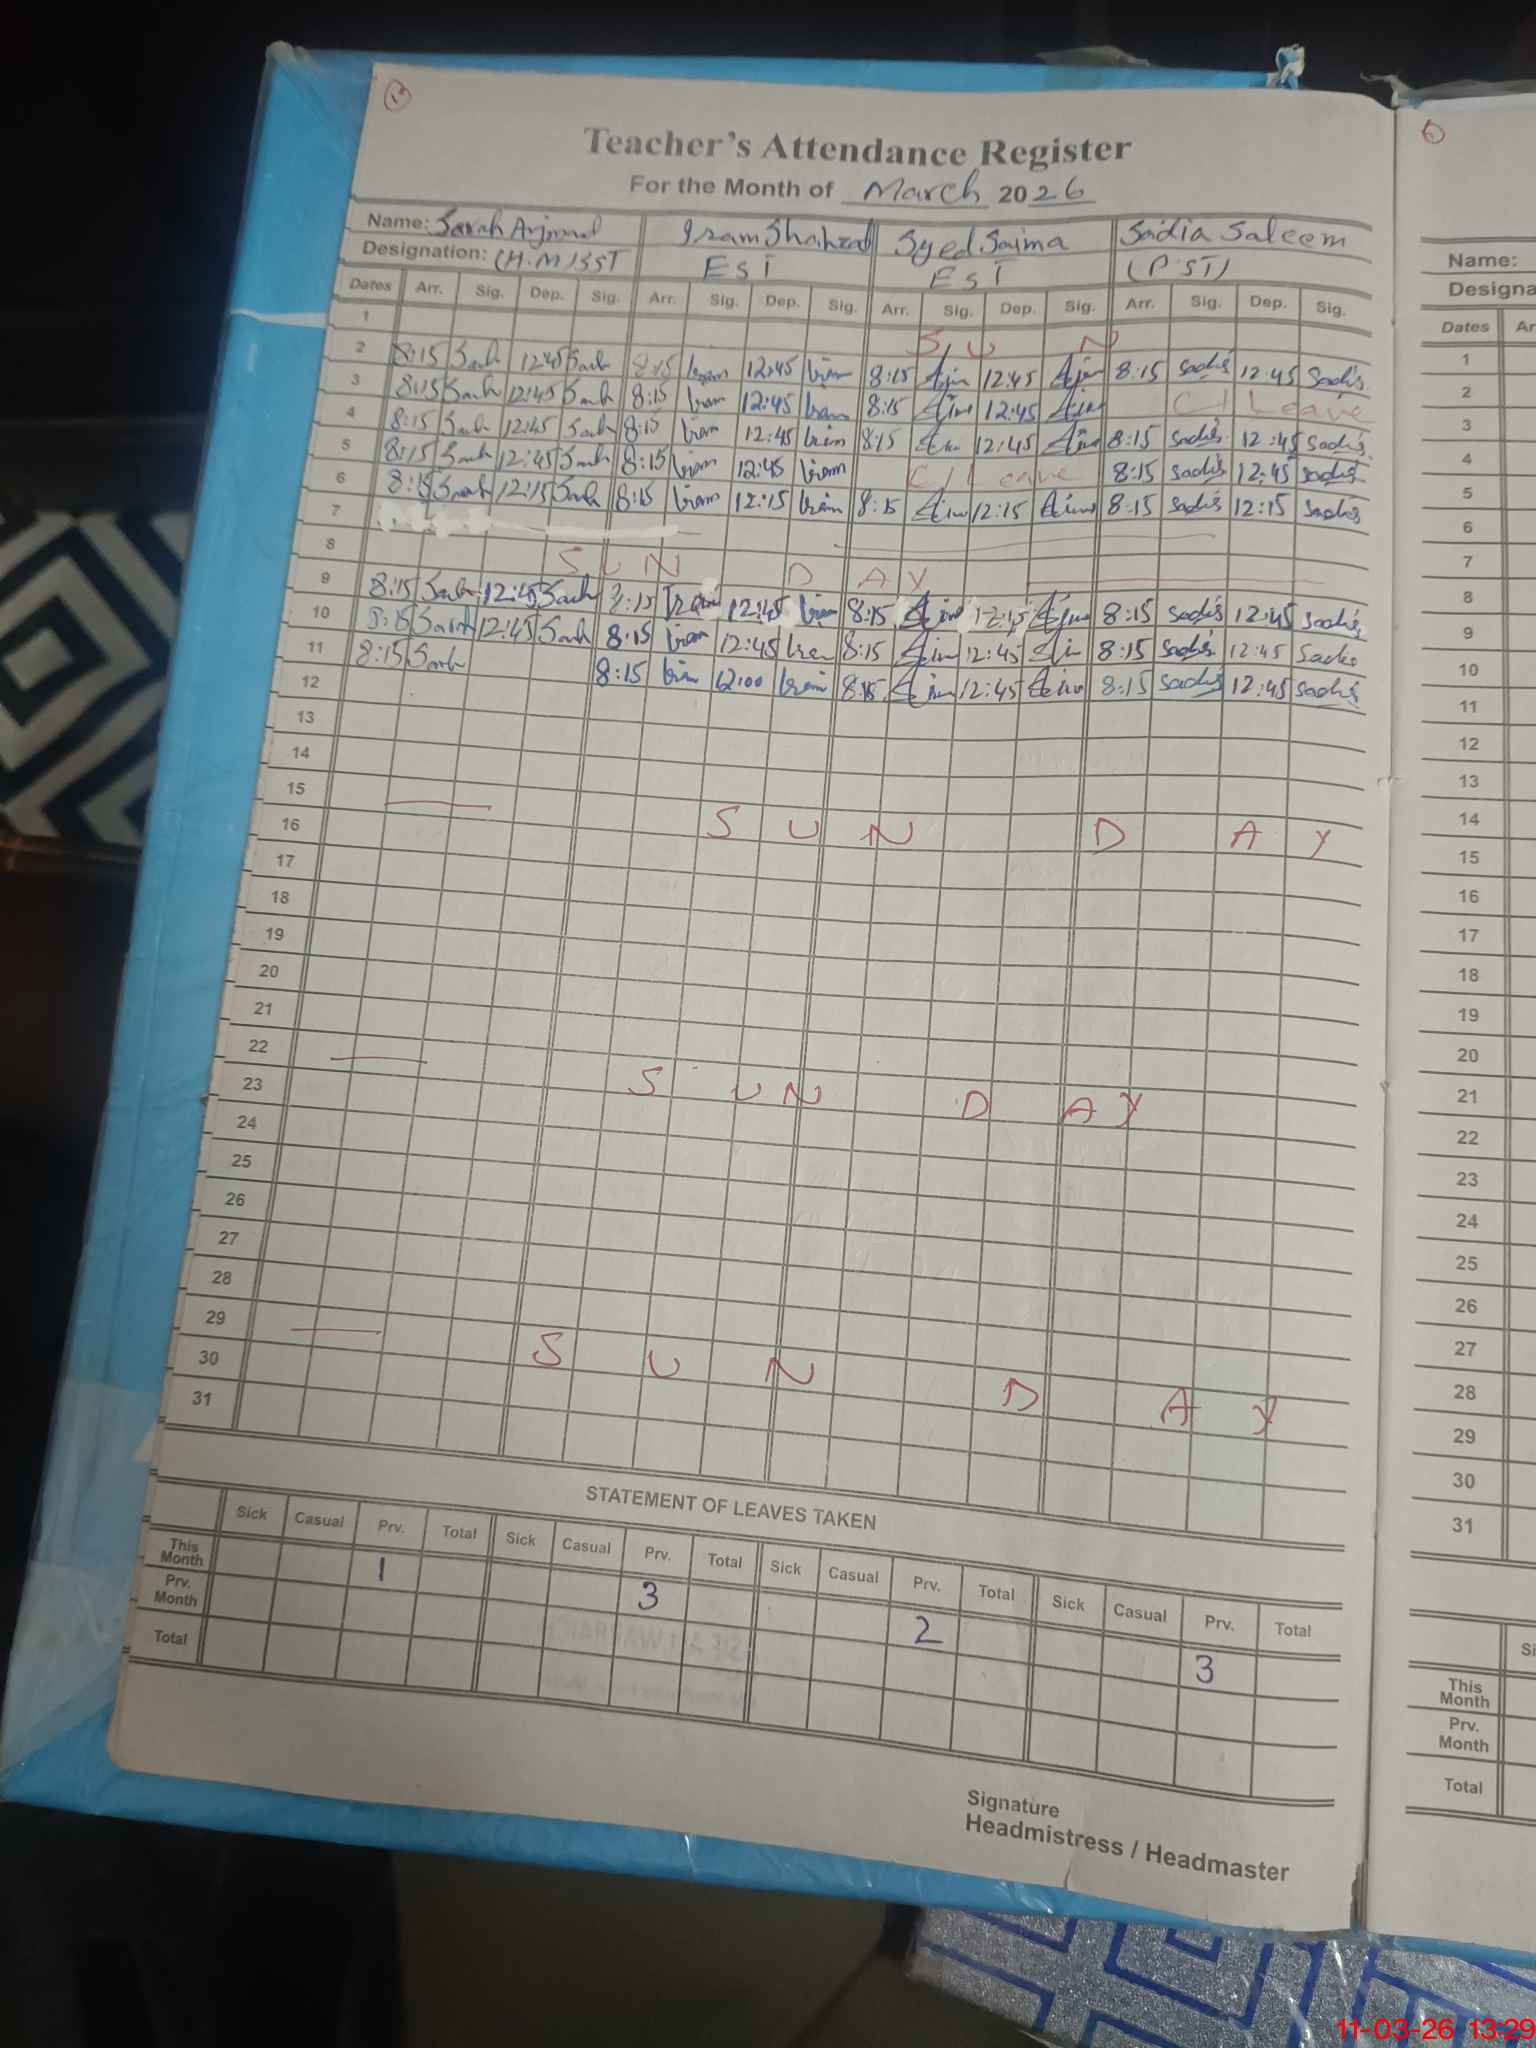 Teacher's Attendance Register
For the Month of March 2026
Name: Sarah Arjmnd Iram Shahzad Syed Saima Sadia Saleem
Designation: (H.M) SST EST EST (P.ST)
Dates Arr. Sig. Dep. Sig. Arr. Sig. Dep. Sig. Arr. Sig. Dep. Sig. Arr. Sig. Dep. Sig.
1 S U N
2 8:15 Sarah 12:45 Sarah 8:15 Iram 12:45 Iram 8:15 12:45 8:15 Sadia 12:45 Sadia
3 8:15 Sarah 12:45 Sarah 8:15 Iram 12:45 Iram 8:15 12:45 C/ Leave
4 8:15 Sarah 12:45 Sarah 8:15 Iram 12:45 Iram 8:15 12:45 8:15 Sadia 12:45 Sadia
5 8:15 Sarah 12:45 Sarah 8:15 Iram 12:45 Iram C/ Leave 8:15 Sadia 12:45 Sadia
6 8:15 Sarah 12:15 Sarah 8:15 Iram 12:15 Iram 8:15 12:15 8:15 Sadia 12:15 Sadia
7
8 S U N D A Y
9 8:15 Sarah 12:45 Sarah 8:15 Iram 12:45 Iram 8:15 8:15 Sadia 12:45 Sadia
10 8:15 Sarah 12:45 Sarah 8:15 Iram 12:45 Iram 8:15 12:45 8:15 Sadia 12:45 Sadia
11 8:15 Sarah 8:15 Iram 12:00 Iram 8:15 12:45 8:15 Sadia 12:45 Sadia
12
13
14
15 S U N D A Y
16
17
18
19
20
21
22 S U N D A Y
23
24
25
26
27
28
29 S U N D A Y
30
31
STATEMENT OF LEAVES TAKEN
Sick Casual Prv. Total Sick Casual Prv. Total Sick Casual Prv. Total Sick Casual Prv. Total
This Month 1 3 2 3
Prv. Month
Total
Signature
Headmistress / Headmaster
Name:
Designa
Dates Ar
1
2
3
4
5
6
7
8
9
10
11
12
13
14
15
16
17
18
19
20
21
22
23
24
25
26
27
28
29
30
31
Si
This Month
Prv. Month
Total
11-03-26 13:29